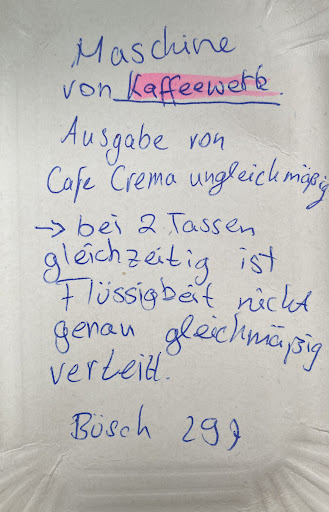 Maschine
von Kaffeewerk.
Ausgabe von
Cafe Crema ungleichmäßig
→ bei 2 Tassen
gleichzeitig ist
Flüssigkeit nicht
genau gleichmäßig
verteilt.
Büsch 29